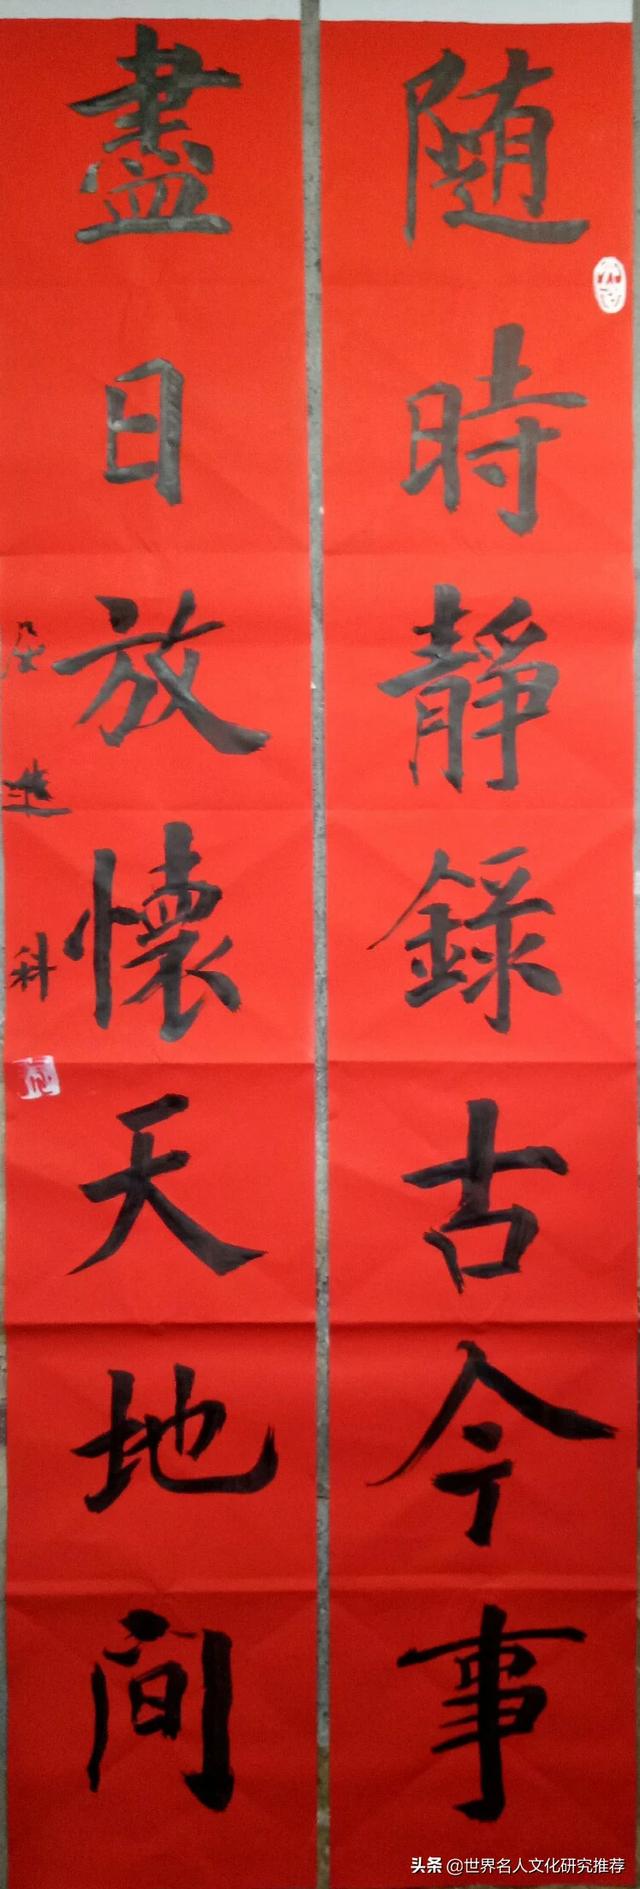 随時靜錄古今事
盡日放懷天地间
头条 @世界名人文化研究推荐